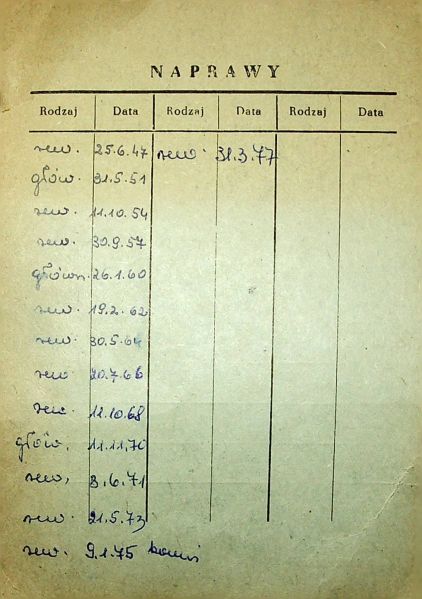 NAPRAWY
Rodzaj Data Rodzaj Data Rodzaj Data
rew. 25.6.47 rew. 31.3.77
głów. 31.5.51
rew. 11.10.54
rew. 30.9.57
główn. 26.1.60
rew. 19.2.62
rew. 30.5.64
rew 20.7.66
rew. 11.10.68
głów. 11.11.70
rew. 3.6.71
rew. 21.5.73
rew. 9.1.75